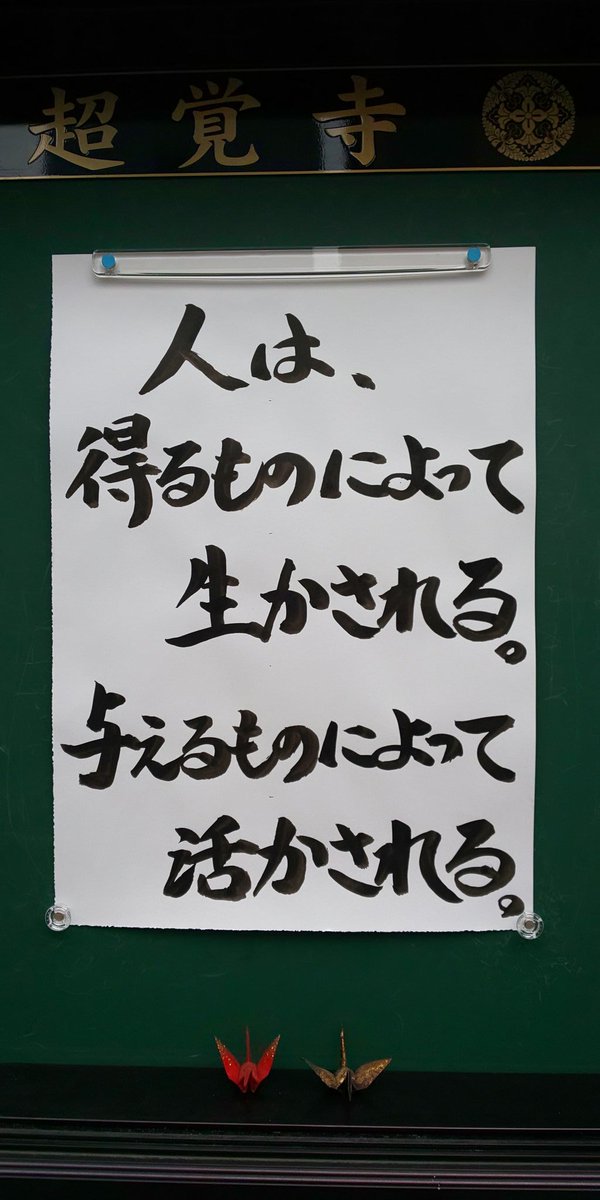 超覚寺
人は、
得るものによって
生かされる。
与えるものによって
活かされる。